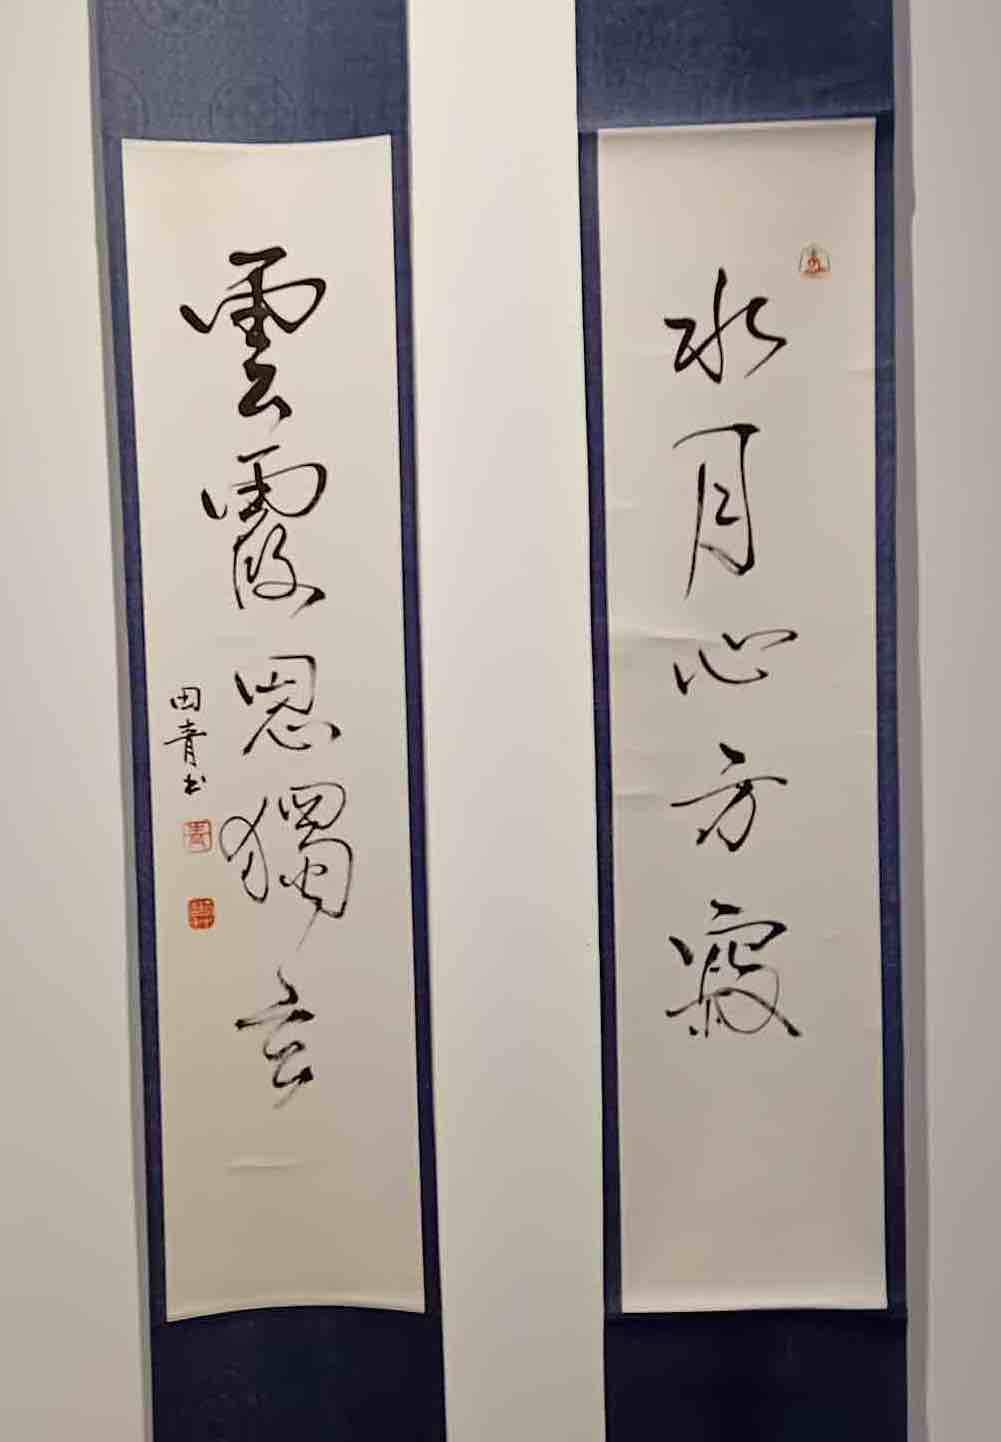 水月心方寂
雲霞思獨玄
田青书